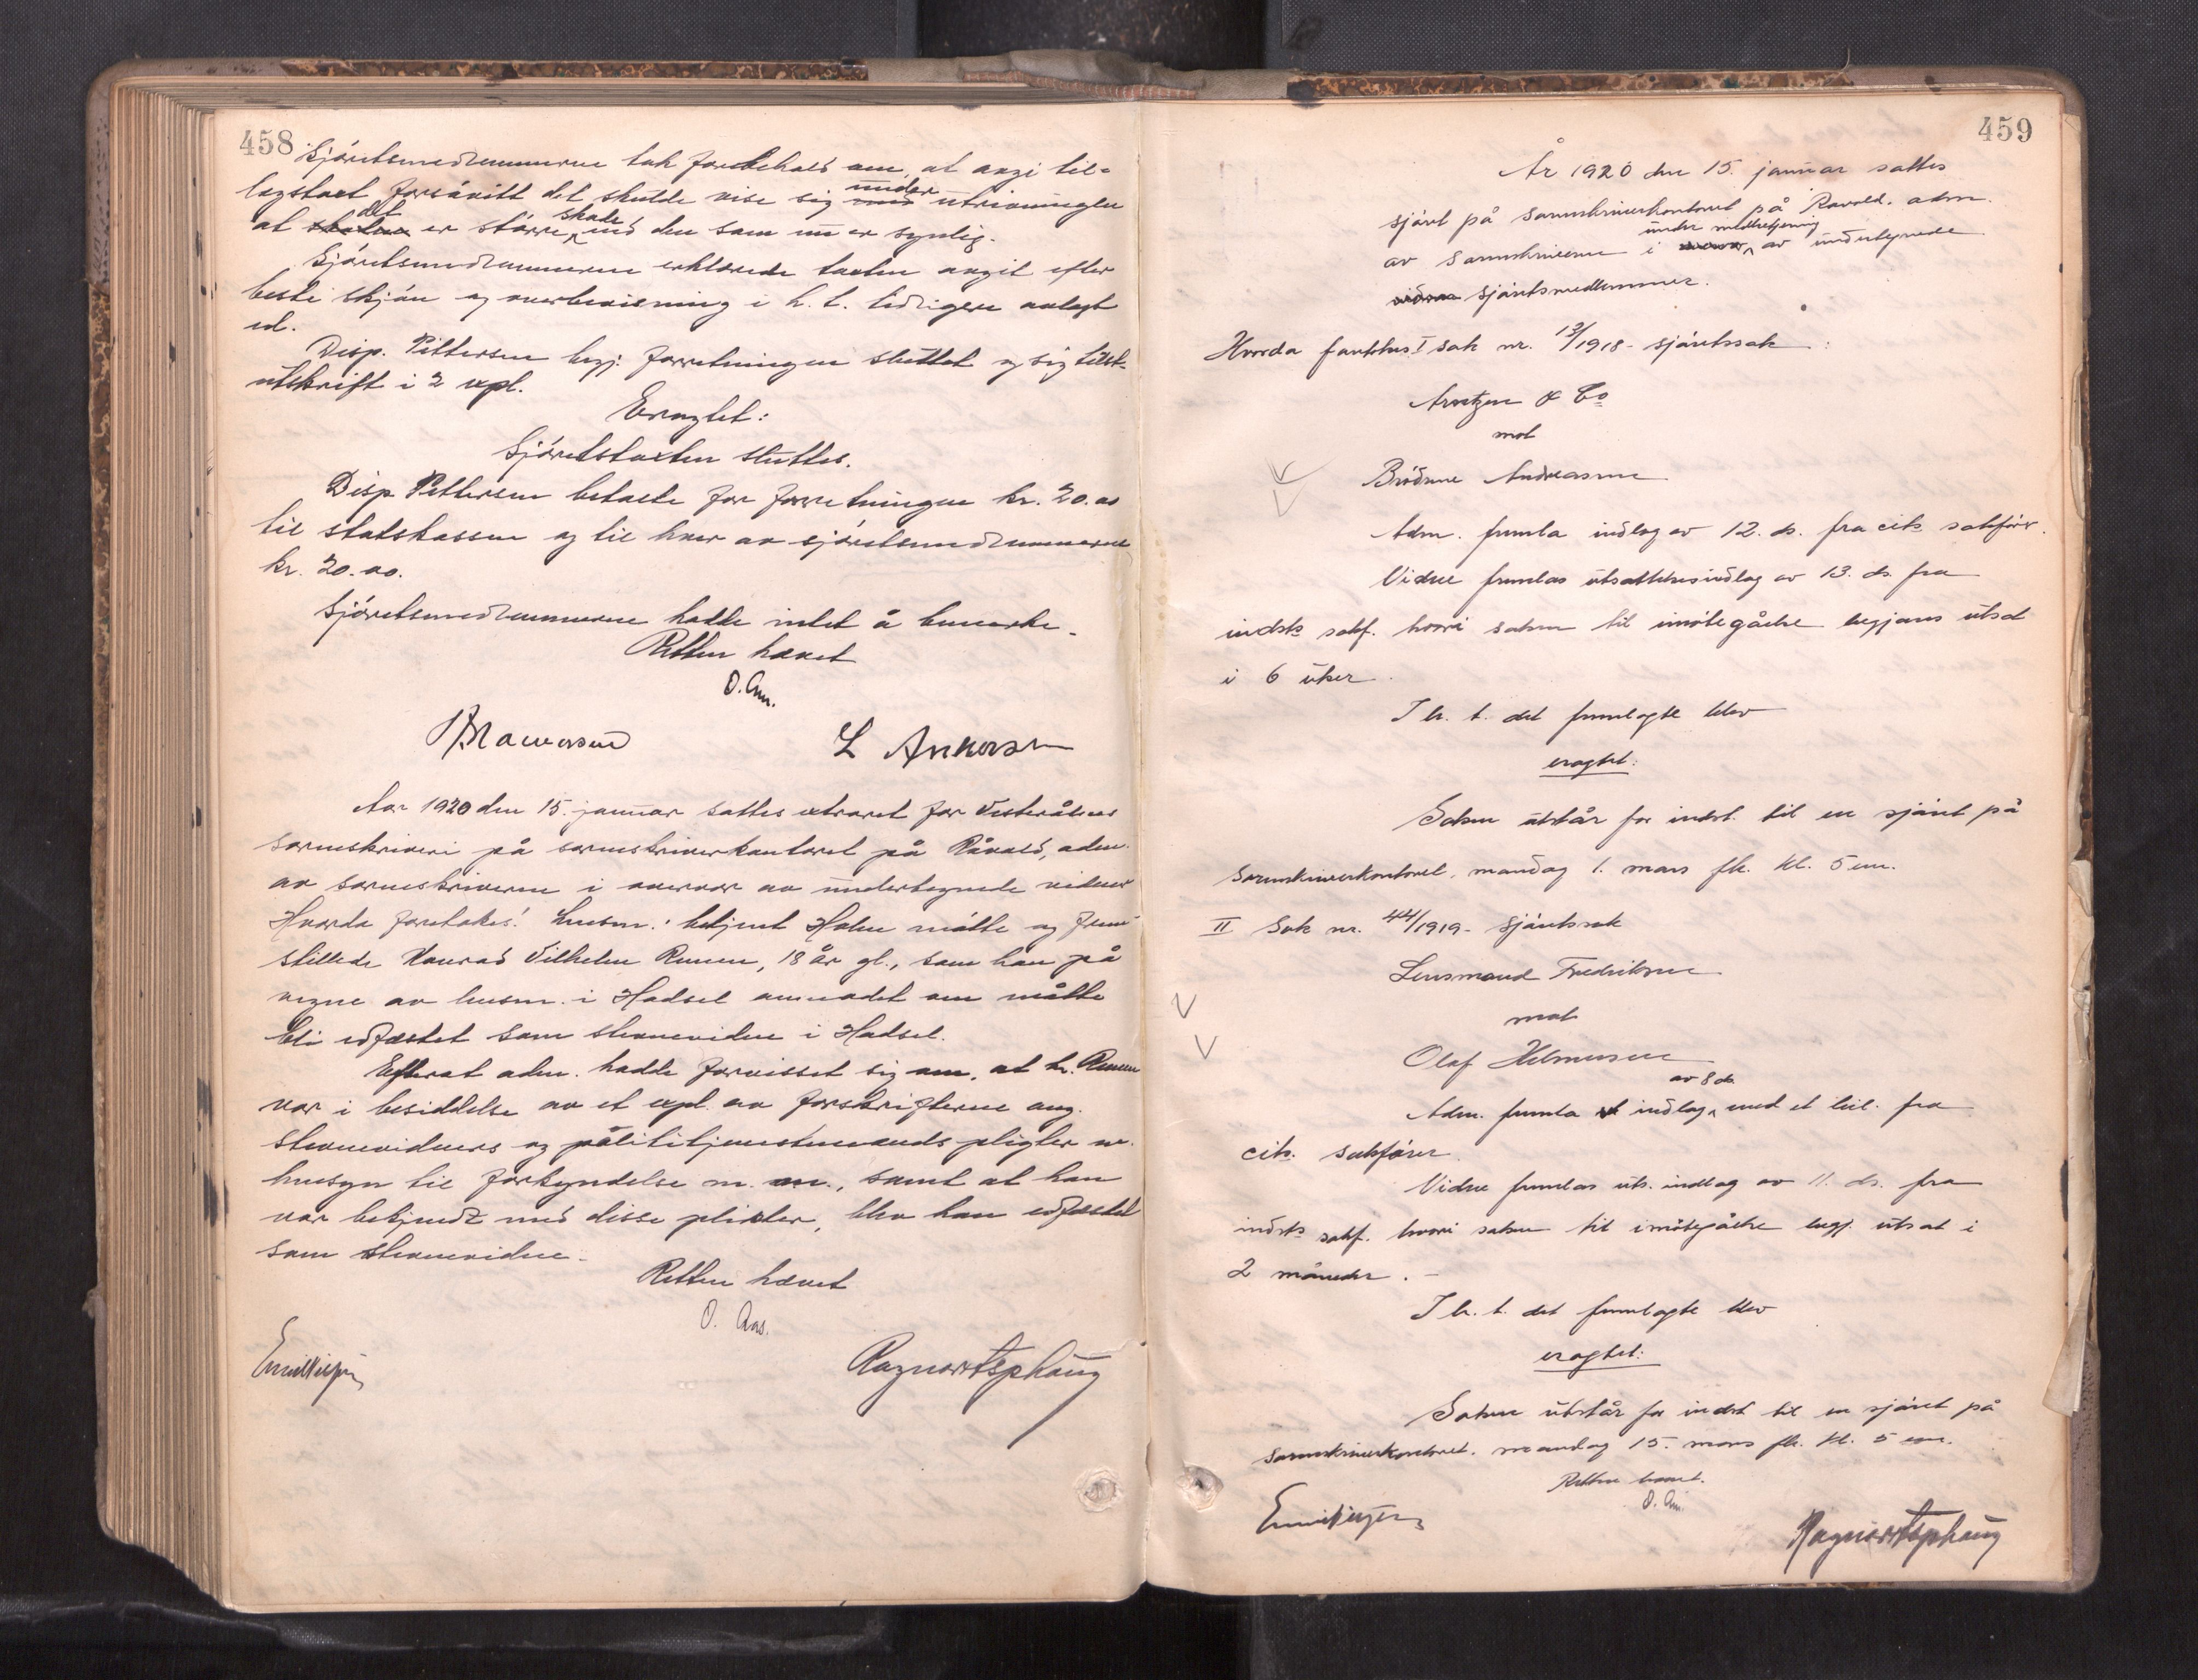 458
Sjöretsmedlemmerne tok forbehold om, at angi til-
lægstaxt forsåvitt det skulde vise sig under utrivningen
at det er större skade end den som nu er synlig.
Sjöretsmedlemmerne erklærede taxten avgit efter
beste skjön og overbevisning i h. t. tidligere avlagt
ed.
Disp. Pettersen begj. forretningen sluttet og sig tilst.
utskrift i 2 expl.
Eragtet:
Sjöretstaxten sluttes.
Disp. Pettersen betalte for forretningen kr. 20.00
til statskassen og til hver av sjöretsmedlemmerne
kr. 20.00.
Sjöretsmedlemmerne hadde intet å bemerke.
Retten hævet
O. Aas.
L Ankersen
Aar 1920 den 15. januar sattes extraret for Vesterålens
sorenskriveri på sorenskriverkontoret på Råvold, adm.
av sorenskriveren i overvær av undertegnede vidner
Hvorda foretokes: Lensm. betjent Holm mötte og frem-
stillede Konrad Vilhelm , 18 år gl., som han på
vegne av lensm. i Hadsel anmodet om måtte
bli edfæstet som stevnevidne i Hadsel.
Efterat adm. hadde forvisset sig om, at hr.
var i besiddelse av et expl. av forskrifterne ang.
stevnevidners og politijenestemænds pligter m.
hensyn til forkyndelse m. m., samt at han
var bekjendt med disse plikter, blev han edfæstet
som stevnevidne.
Retten hævet
O. Aas.
459
År 1920 den 15. januar sattes
sjöret på sorenskriverkontoret på Råvold. adm.
av sorenskriveren i under medbetjening av undertegnede
sjöretsmedlemmer.
Hvorda foretokes I Sak nr. 13/1918 - sjöretssak:
Arntzen & Co
mot
Brödrene Andreassen
Adm. fremla indlæg av 12. ds. fra cits sakförer.
Videre fremlas utsættelsesindlæg av 13. ds. fra
indsts sakf. hvori saken til imötegåelse begjæres utsat
i 6 uker.
I h. t. det fremlagte blev
eragtet:
Saken utstår for indst. til en sjöret på
sorenskriverkontoret, mandag 1. mars fk. kl. 5 em.
II Sak nr. 44/1919 - Sjöretssak
Lensmand Fredriksen
mot
Olaf Helmersen
Adm. fremla indlæg av 8 ds. med et bil. fra
cits. sakförer.
Videre fremlas uts. indlæg av 11. ds. fra
indsts sakf. hvori saken til imötegåelse begj. utsat i
2 måneder. -
I h. t. det fremlagte blev
eragtet:
Saken utstår for indst til en sjöret på
sorenskriverkontoret. mandag 15. mars fk. kl. 5 em.
Retten hævet.
O. Aas.